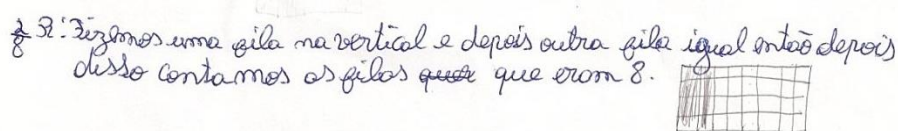 2/8 R: Fizemos uma fila na vertical e depois outra fila igual então depois
disso contamos as filas quer que eram 8.